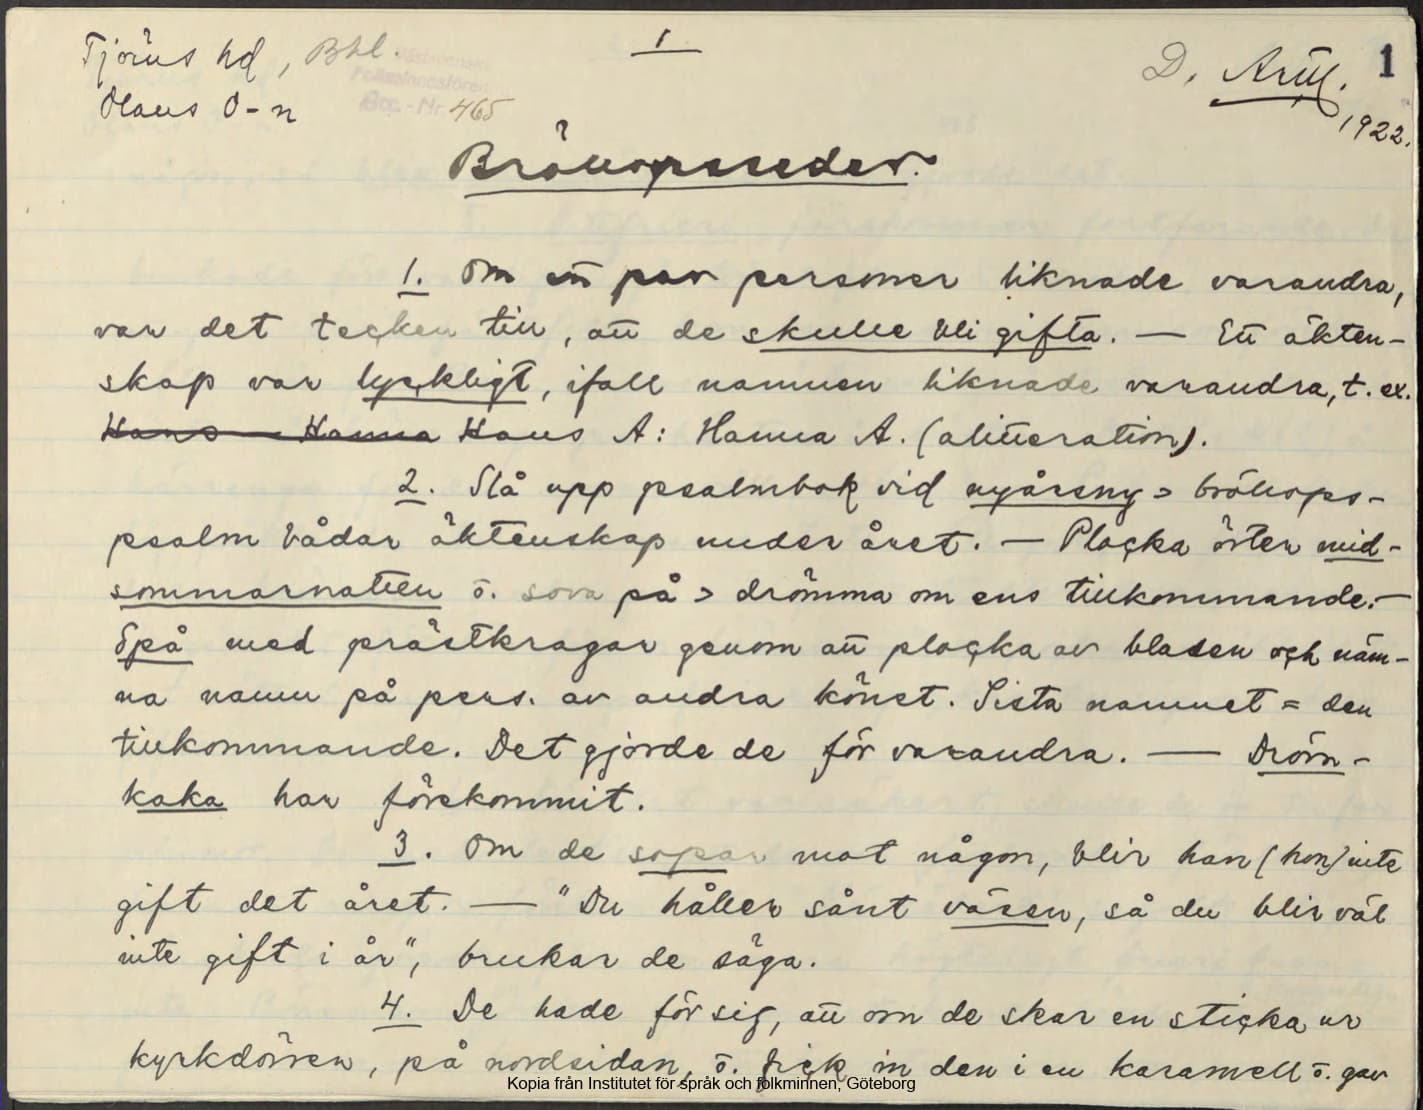 Tjörns hd, Bhl. 1 D. Arill. 1
Olaus O-n Västsvenska Folkminnesföreni Acc.-Nr 465 1922.
Bröllopsseder.
1. Om ett par personer liknade varandra,
var det tecken till, att de skulle bli gifta. — Ett äkten-
skap var lyckligt, ifall namnen liknade varandra, t. ex.
Hans — Hanna Hans A: Hanna A. (alitteration).
2. Slå upp psalmbok vid nyårsny > bröllops-
psalm bådar äktenskap under året. — Plocka örter mid-
sommarnatten o. sova på > drömma om ens tillkommande. —
Spå med prästkragar genom att plocka av bladen och näm-
na namn på pers. av andra könet. Sista namnet = den
tillkommande. Det gjorde de för varandra. — Dröm-
kaka har förekommit.
3. Om de sopar mot någon, blir han (hon) inte
gift det året. — "Du håller sånt väsen, så du blir väl
inte gift i år", brukar de säga.
4. De hade för sig, att om de skar en sticka ur
kyrkdörren, på nordsidan, o. fick in den i en karamell o. gav
Kopia från Institutet för språk och folkminnen, Göteborg